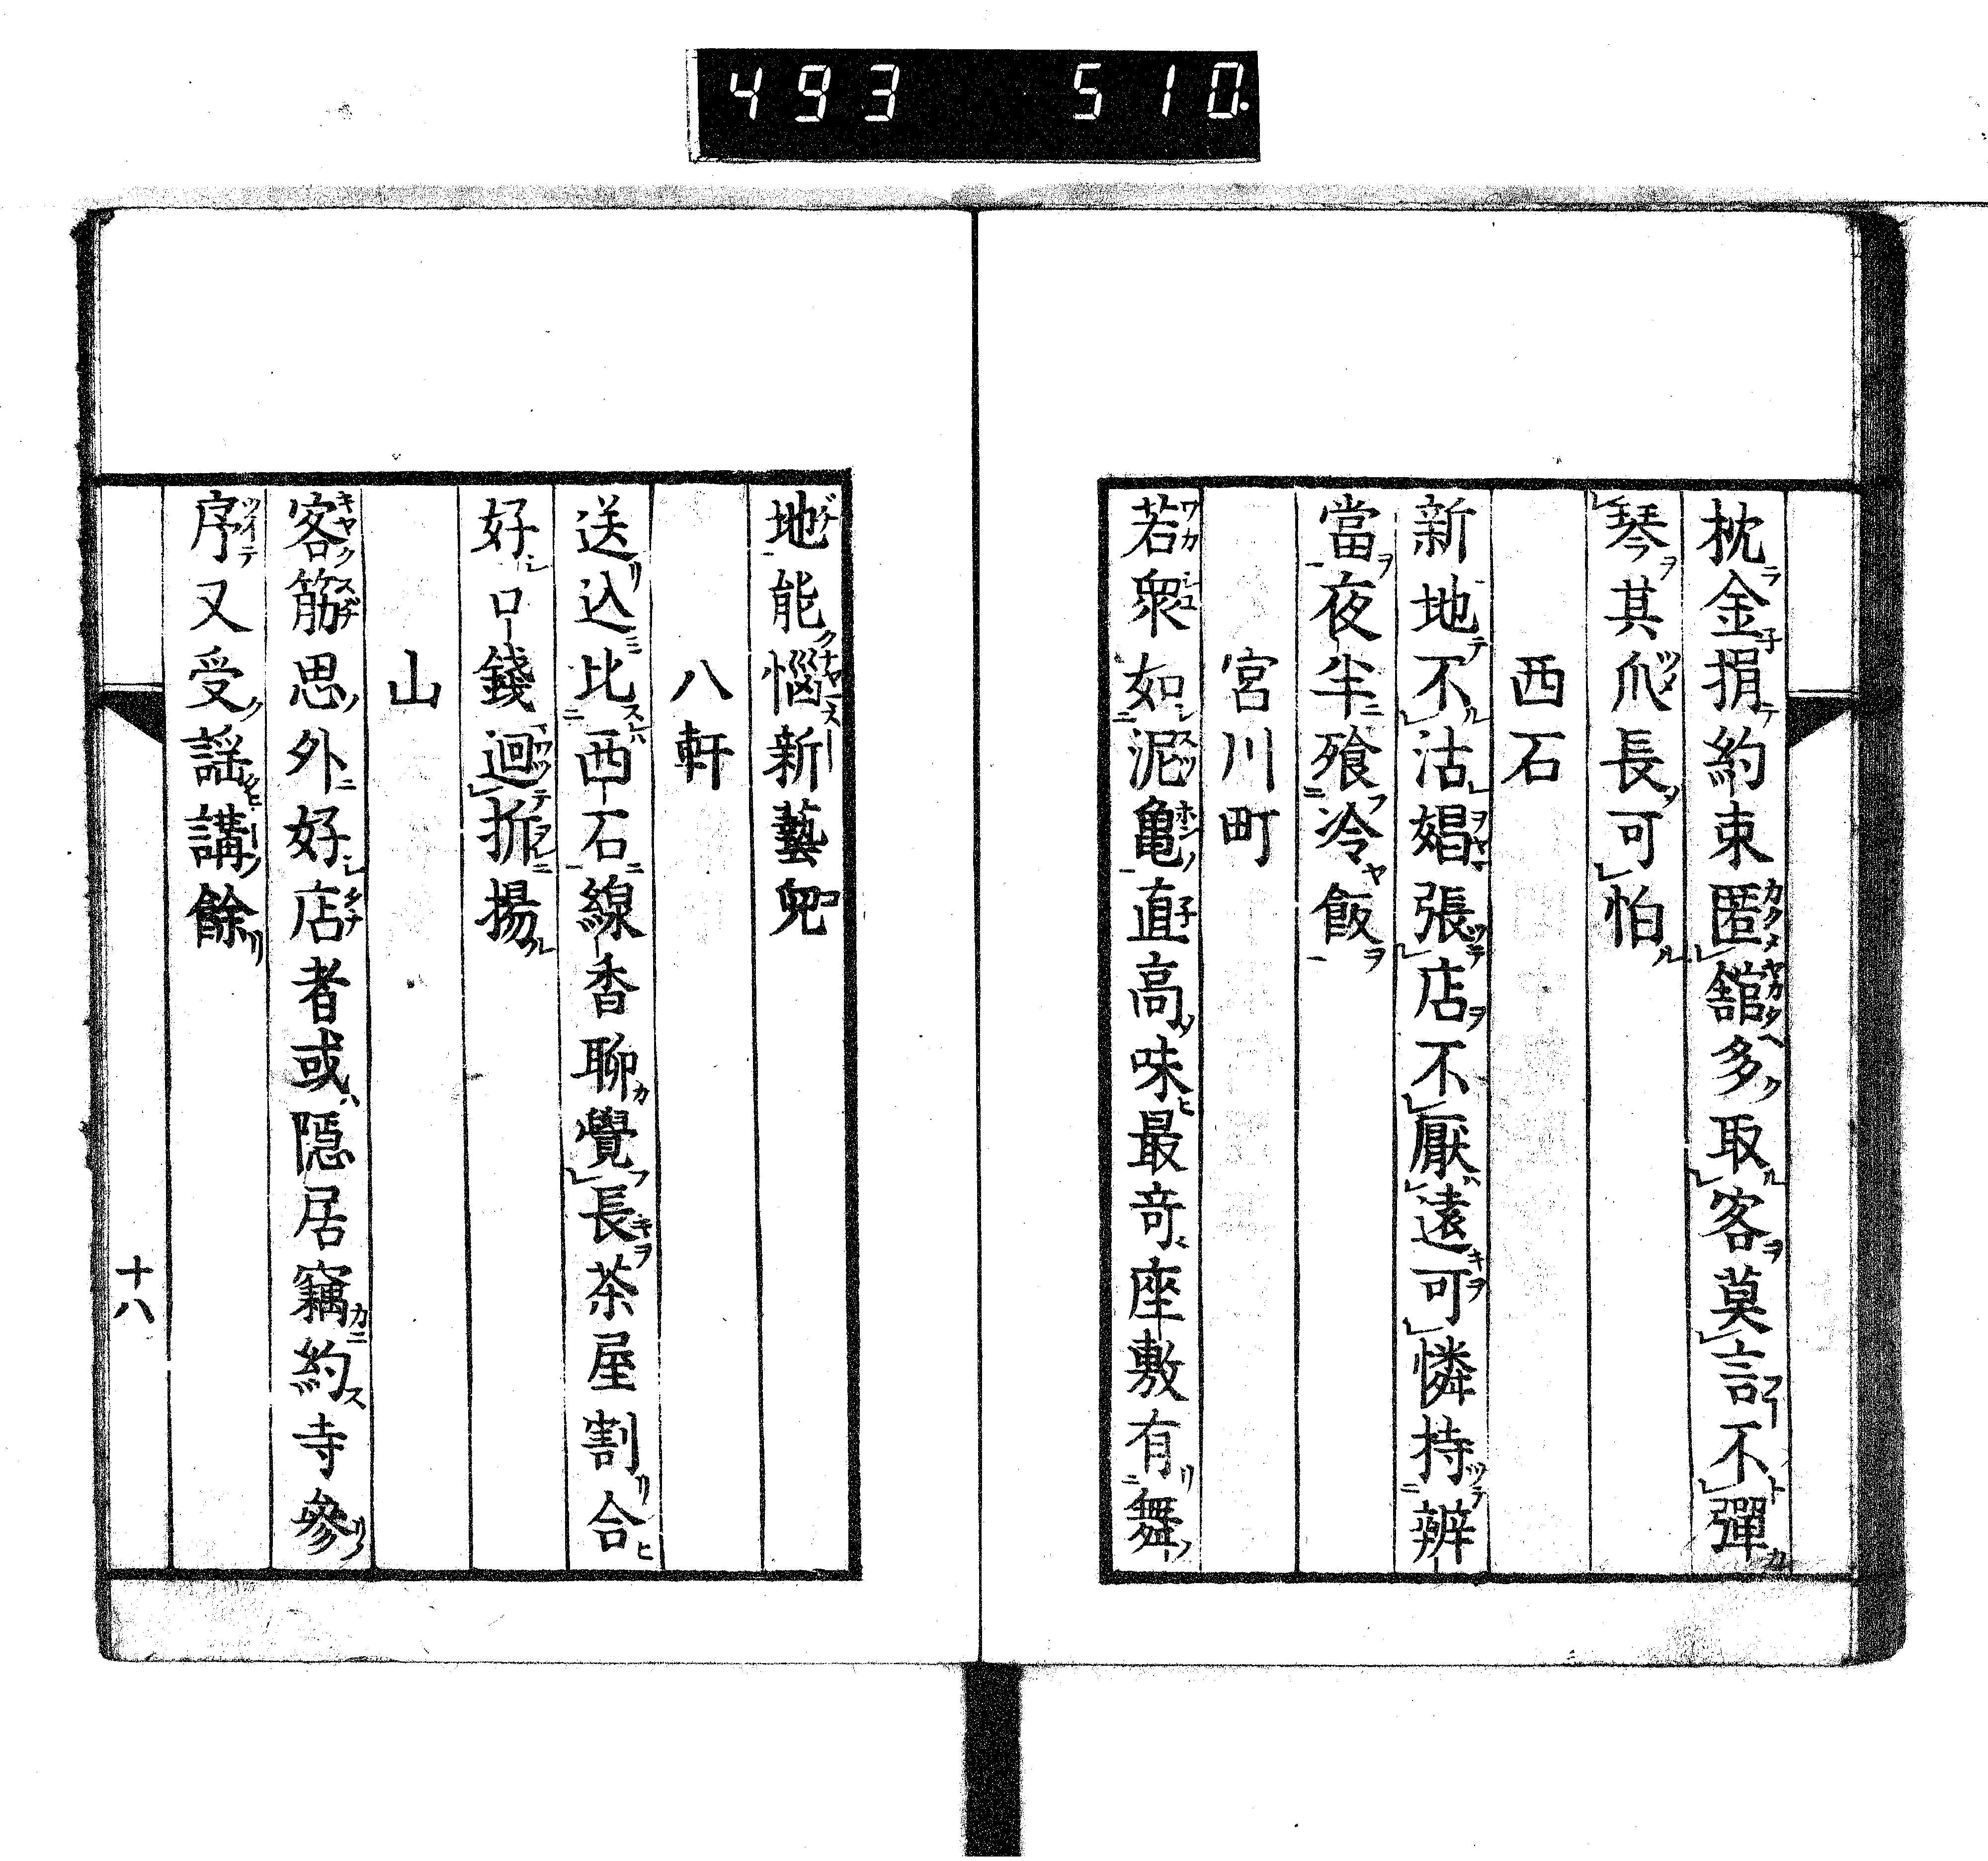 493 510.
枕金捐約束匿舘多取客莫言不彈
琴其爪長可怕
西石
新地不沽娼張店不厭遠可憐持辨
當夜半飱冷飯
宮川町
若衆如泥亀直高味最奇座敷有舞
地能惱新藝兒
八軒
送込比西石線香聊覺長茶屋割合
好口錢迴折揚
山
客筋思外好店者或隠居竊約寺參
序又受謡講餘
十八